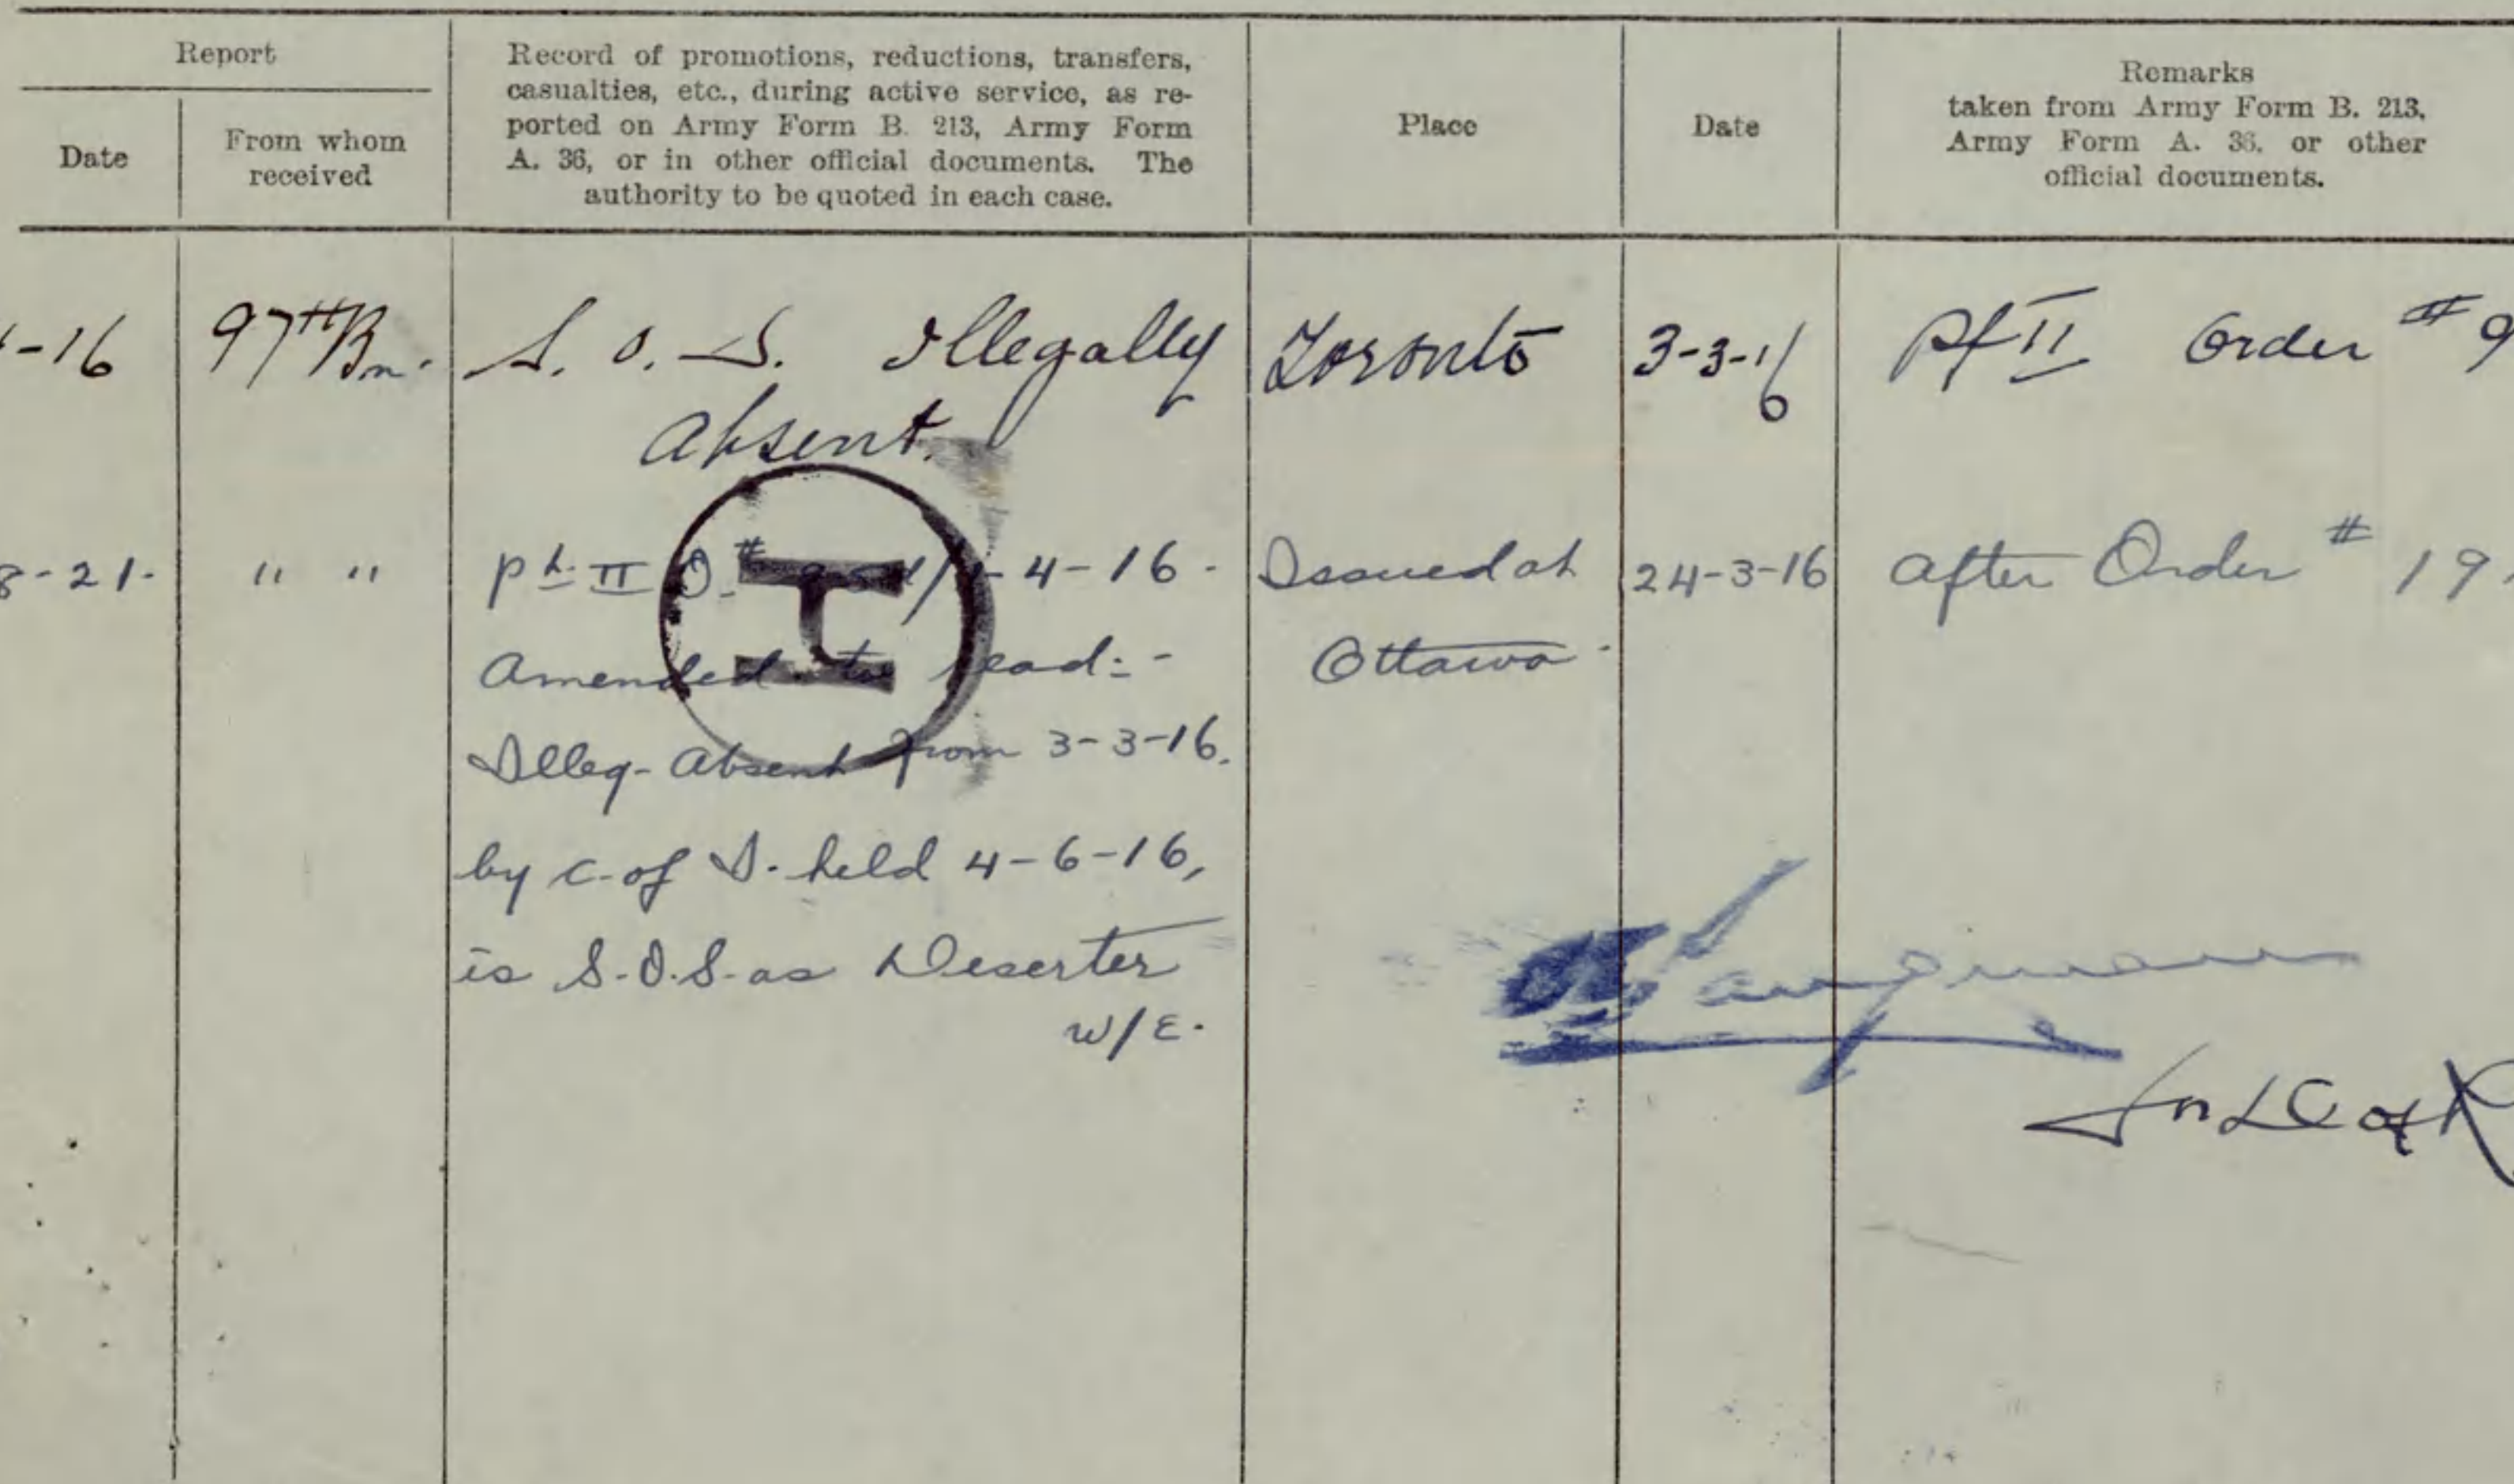 Report
Date
From whom
received
Record of promotions, reductions, transfers,
casualties, etc., during active service, as re-
ported on Army Form B. 213, Army Form
A. 36, or in other official documents. The
authority to be quoted in each case.
Place
Date
Remarks
taken from Army Form B. 213,
Army Form A. 36, or other
official documents.
-16 97th Bn. S. O. S. Illegally Toronto 3-3-16 Pt II Order # 9
Absent.
8-21- " " Pt. II O. # 4-16- Issued at 24-3-16 After Order # 19
Amended to read:- Ottawa-
Illeg- Absent from 3-3-16.
by C. of I. held 4-6-16,
is S.O.S. as Deserter
w/E.
H
for